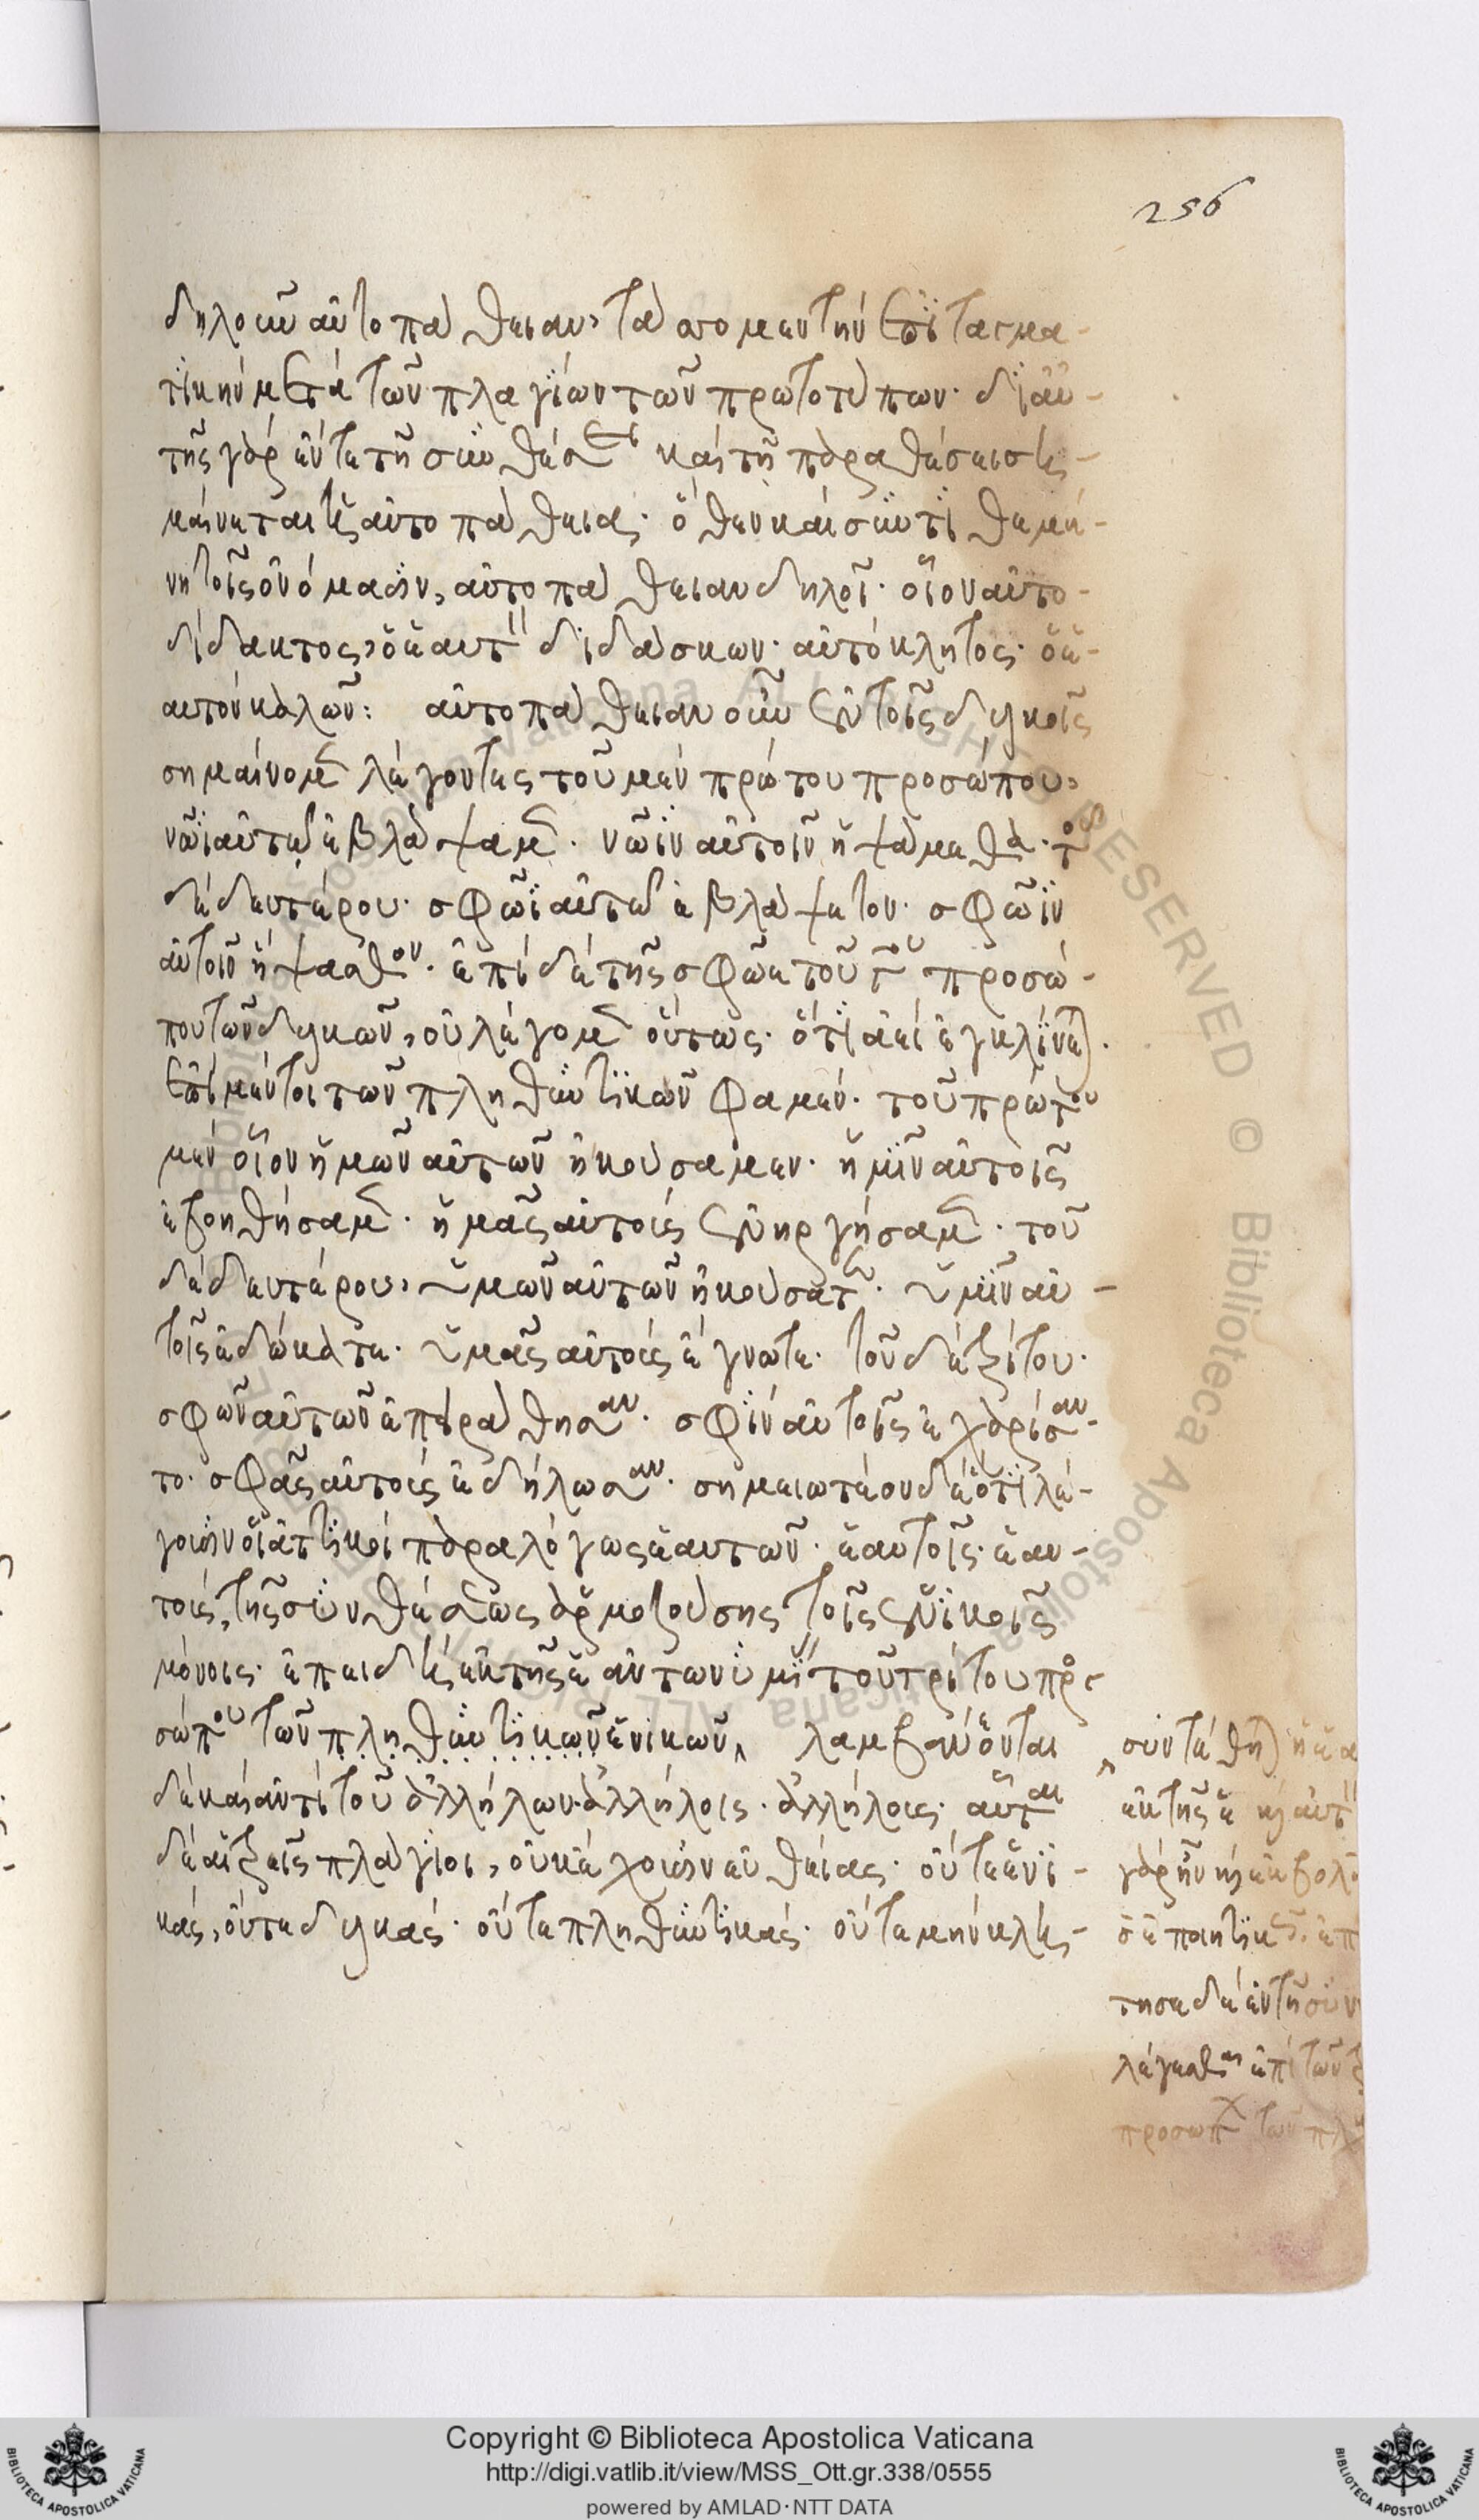 256
δηλοῦν αὐτοπάθειαν, τάσσομεν τὴν ἐπιταγμα-
τικὴν μετὰ τῶν πλαγίων τῶν πρωτοτύπων· δι' αὐ-
τῆς γὰρ ἔν τε τῇ συνθέσει καὶ τῇ παραθέσει ση-
μαίνεται ἡ αὐτοπάθεια· ὅθεν καὶ συντιθεμέ-
νη τοῖς ὀνόμασιν, αὐτοπάθειαν δηλοῖ· οἷον αὐτο-
δίδακτος, ὁ ἑαυτὸν διδάσκων· αὐτόκλητος· ὁ ἑ-
αυτὸν καλῶν: αὐτοπάθειαν οὖν ἐν τοῖς δυϊκοῖς
σημαίνομεν λέγοντες τοῦ μὲν πρώτου προσώπου,
νῶϊ αὐτὼ ἐβλάψαμεν· νῶϊν αὐτοῖν ἡψάμεθα· τοῦ
δὲ δευτέρου· σφῶϊ αὐτὼ ἐβλάψατον· σφῶϊν
αὐτοῖν ἥψασθον· ἐπὶ δὲ τῆς σφωὲ τοῦ γου προσώ-
που τῶν δυϊκῶν, οὐ λέγομεν οὕτως· ὅτι ἀεὶ ἐγκλίνεται·
ἐπὶ μέντοι τῶν πληθυντικῶν φαμέν· τοῦ πρώτου
μὲν οἷον ἡμῶν αὐτῶν ἠκούσαμεν· ἡμῖν αὐτοῖς
ἐβοηθήσαμεν· ἡμᾶς αὐτοὺς ἐνηργήσαμεν· τοῦ
δὲ δευτέρου, ὑμῶν αὐτῶν ἠκούσατε· ὑμῖν αὐ-
τοῖς ἐδώκατε· ὑμᾶς αὐτοὺς ἔγνωτε· τοῦ δὲ τρίτου·
σφῶν αὐτῶν ἐπειράθησαν· σφίν αὐτοῖς ἐχαρίσαν-
το· σφᾶς αὐτοὺς ἐδήλωσαν· σημειωτέον δὲ ὅτι λέ-
γουσιν οἱ ἀττικοὶ παραλόγως ἑαυτῶν· ἑαυτοῖς· ἑαυ-
τούς, τῆς συνθέσεως ἁρμοζούσης τοῖς ἑνικοῖς
μόνοις· ἐπειδὴ ἐκ τῆς ἓ ἀντωνυμίας τοῦ τρίτου προ-
σώπου τῶν πληθυντικῶν ἑνικῶν λαμβάνονται
δὲ καὶ ἀντὶ τοῦ ἀλλήλων· ἀλλήλοις· ἀλλήλους· αὗται
δὲ αἱ τρεῖς πλάγιοι, οὐκ ἔχουσιν εὐθείας· οὔτε ἑνι-
κάς, οὔτε δυϊκάς· οὔτε πληθυντικάς· οὔτε μὴν κλη-
συντέθη
ἐκ τῆς ἓ καὶ αὐτ
γὰρ ἦν
τησε δὲ ἐν τῇ συν
λέγεσθαι ἐπὶ τῶν
προσωπ τῶν πλ
Copyright © Biblioteca Apostolica Vaticana
http://digi.vatlib.it/view/MSS_Ott.gr.338/0555
powered by AMLAD·NTT DATA
BIBLIOTECA APOSTOLICA VATICANA
BIBLIOTECA APOSTOLICA VATICANA